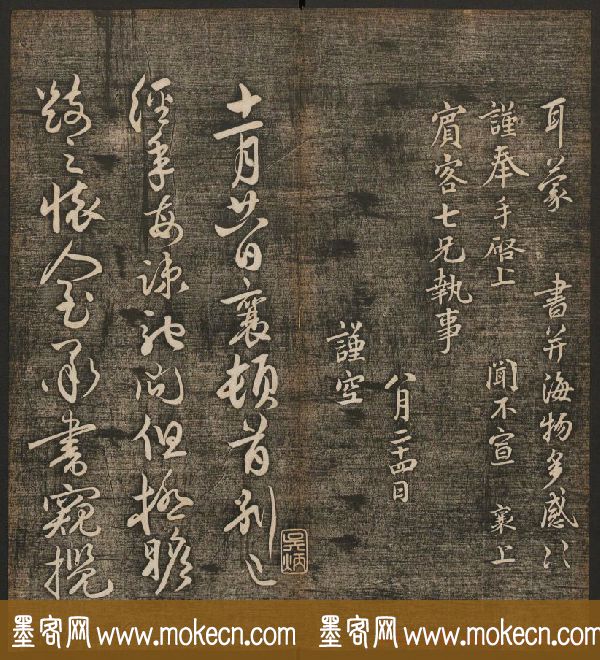 耳蒙 書并海物多感六
謹奉手啓上 聞不宣 襄上
賓客七兄執事
八月二十四日
謹空
十一月廿日襄頓首別已
經年每疎記問但極瞻
懷企承書窺攬
吳炳
墨客网 www.mokecn.com 墨客网 www.mokecn.com